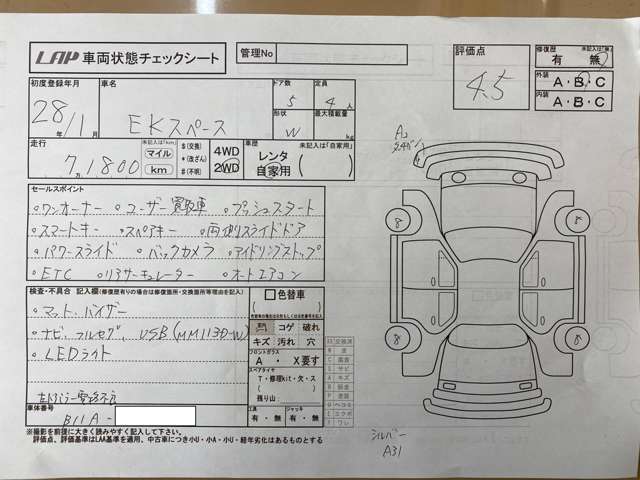 LAP 車両状態チェックシート
管理No
評価点
4.5
修復歴 未記入は「無」
有 無
外装 A・B・C
内装 A・B・C
初度登録年月
28年/1月
車名
EKスペース
ドア数
5
定員
4人
形状
W
最大積載量
kg
走行 未記入は「km」
7万1800
マイル
km
$(交換)
*(改ざん)
#(不明)
4WD
2WD
車歴 未記入は「自家用」
レンタ
自家用
セールスポイント
○ワンオーナー ○ユーザー買取車 ○プッシュスタート
○スマートキー ○スペアキー ○両側スライドドア
○パワースライド ○バックカメラ ○アイドリングストップ
○ETC ○リアサーキュレーター ○オートエアコン
検査・不具合 記入欄(修復歴有りの場合は修復箇所・交換箇所等理由を記入)
○マット、バイザー
○ナビ、フルセグ、USB(MM113D-W)
○LEDライト
色替車
コゲ 破れ
キズ 汚れ 穴
フロントガラス
A ・ X要す
スペアタイヤ
T・修理kit・欠・ス
残り山
工具
有・無
ジャッキ
有・無
車体番号
B11A-
※撮影を前提に大きく読みやすく記入して下さい。
評価点、評価基準はLAA基準を適用、中古車につき小U・小A・小U・経年劣化はあるものとする
8
8
8
8
シルバー
A31